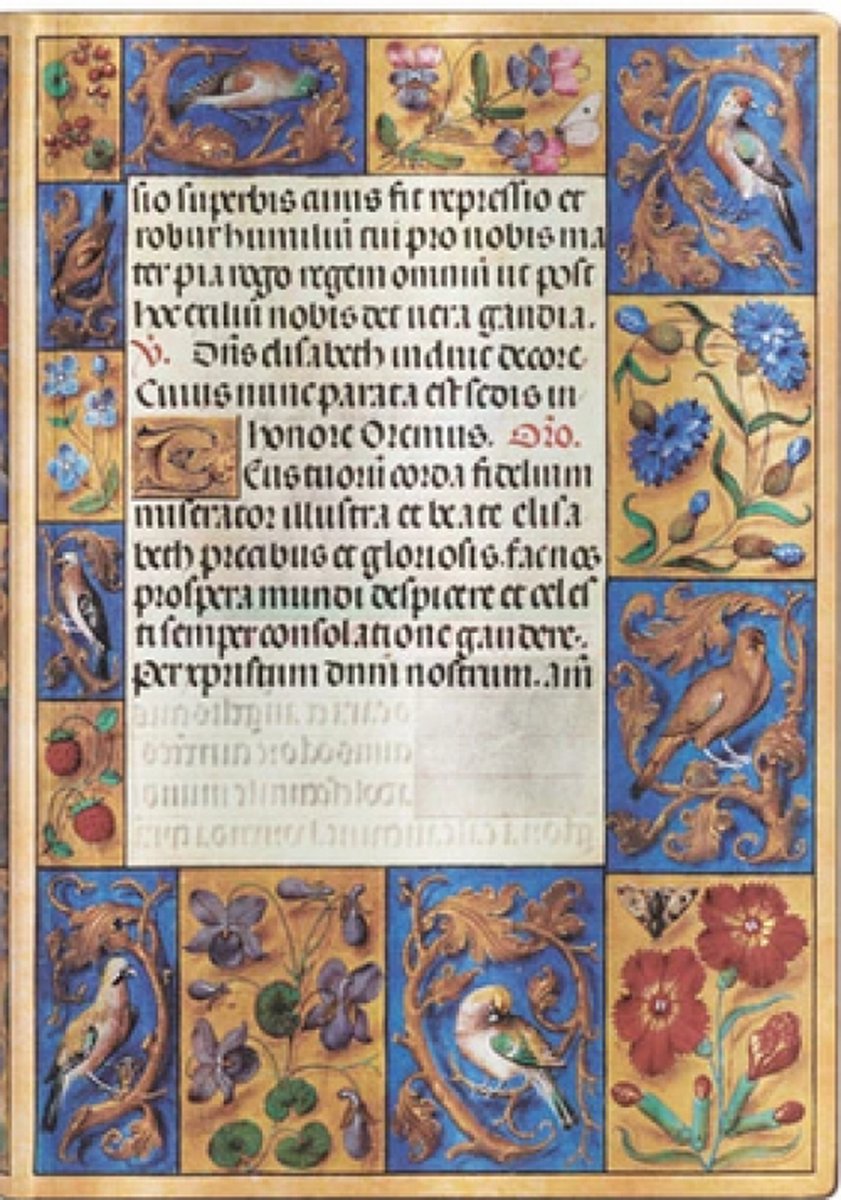 sio superbis cuius fit repressio et
robur humiliū cui pro nobis ma
ter pia rogo regem omniū ut post
hoc exiliū nobis det uera gaudia.
V. Dn̄s elisabeth induit decore
Cuius nunc parata est sedis in
honore Oremus. Orō.
Deus tuorū corda fidelium
miserator illustra et beate elisa
beth precibus et gloriosis fac nos
prospera mundi despicere et celes
ti semper consolatione gaudere.
Per xpristum dnm̄ nostrum. am̄